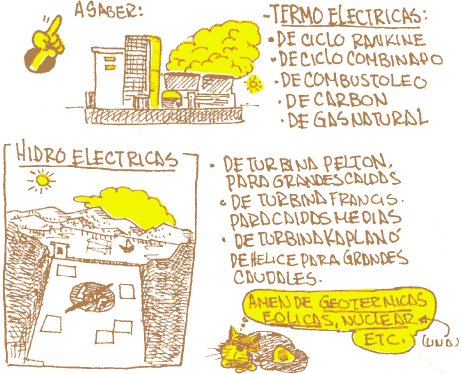 A SABER:
- TERMO ELECTRICAS:
• DE CICLO RANKINE
• DE CICLO COMBINADO
• DE COMBUSTOLEO
• DE CARBON
• DE GAS NATURAL
HIDRO ELECTRICAS
• DE TURBINA PELTON,
PARA GRANDES CAIDAS
• DE TURBINA FRANCIS.
PARA CAIDAS MEDIAS
• DE TURBINA KAPLAN O
DE HELICE PARA GRANDES
CAUDALES.
AMEN DE GEOTERNICAS
EOLICAS, NUCLEAR *
ETC. * (UNA)